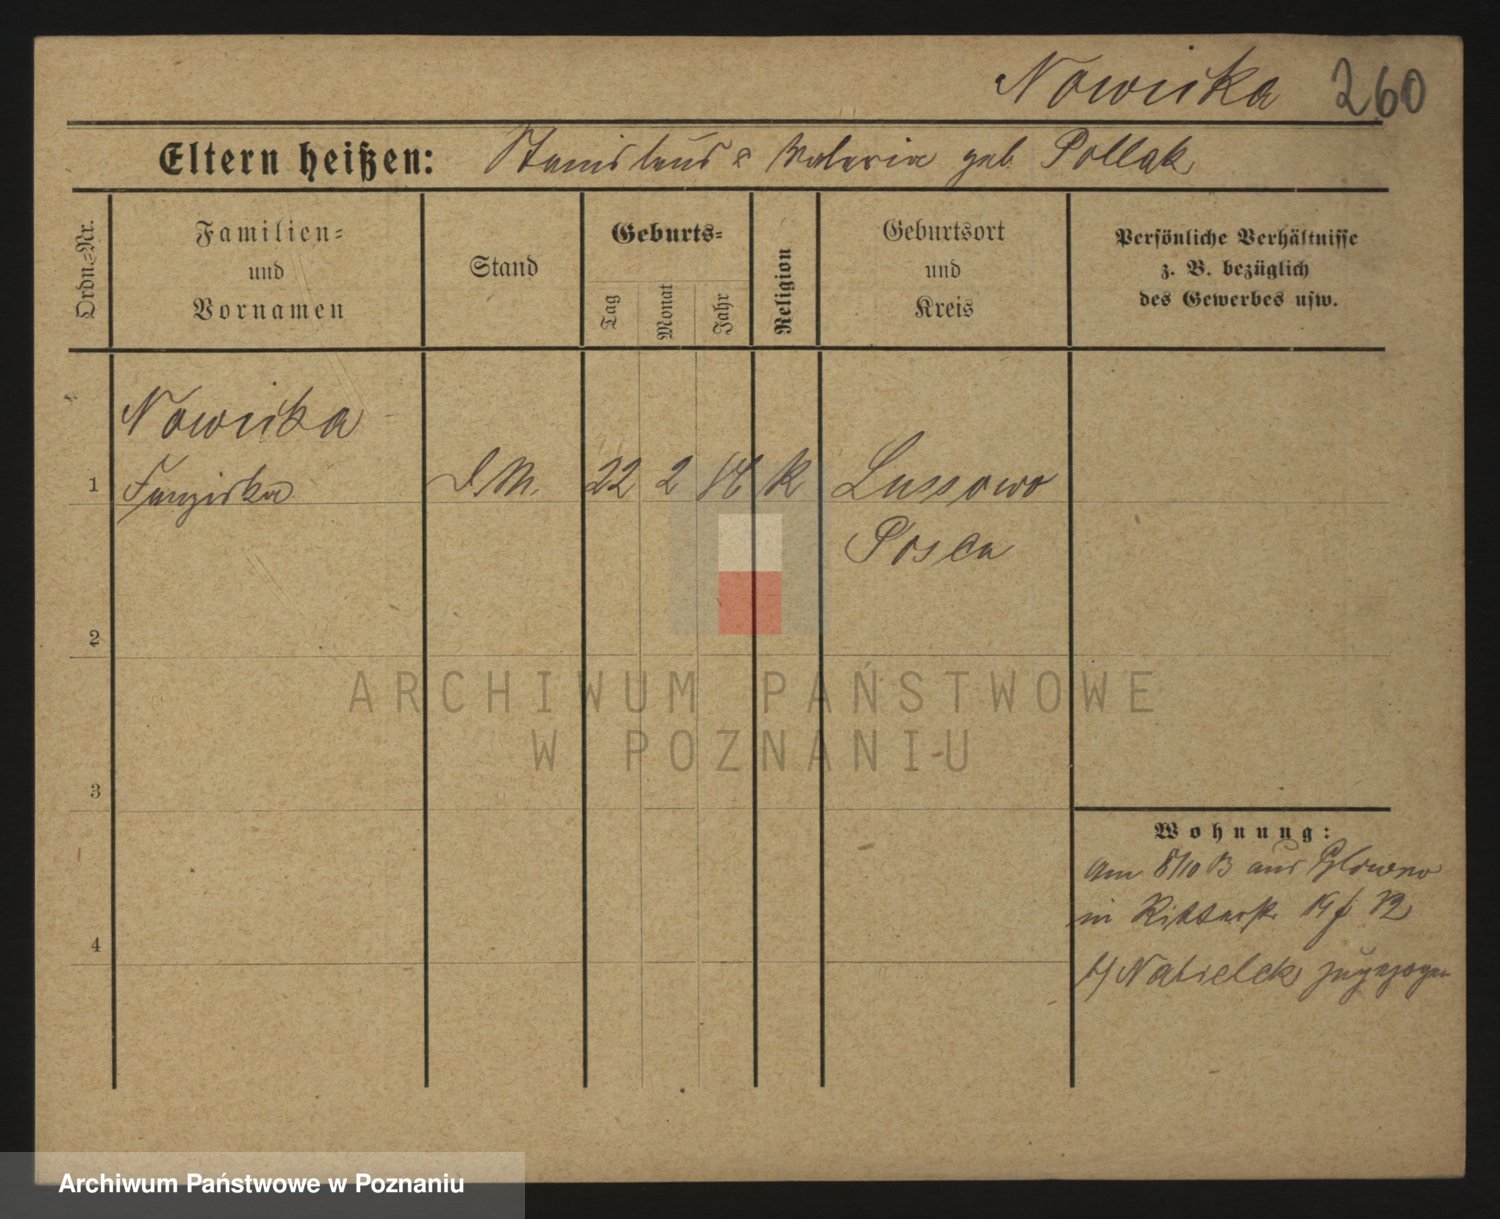 Nowicka 260
Eltern heißen: Stanislaus & Valeria geb. Pollak
Ordn.-Nr.
Familien-
und
Vornamen
Stand
Geburts-
Tag
Monat
Jahr
Religion
Geburtsort
und
Kreis
Persönliche Verhältnisse
z. B. bezüglich
des Gewerbes usw.
Nowicka
1 Franziska D.M. 22 2 K Lussowo
Posen
2
ARCHIWUM PAŃSTWOWE
W POZNANIU
3
Wohnung:
Am 8/10 13 aus Glowno
in Ritterstr.
4
b/ zugezogen
Archiwum Państwowe w Poznaniu